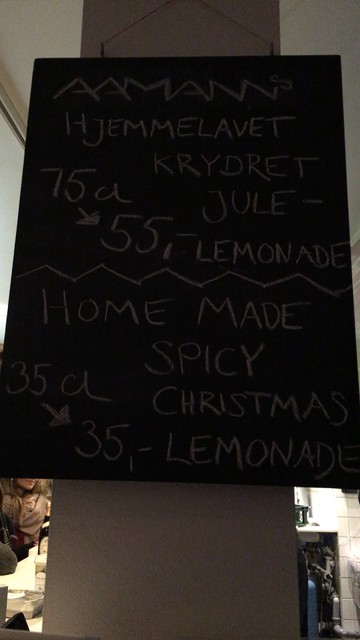 AAMANNS
HJEMMELAVET
KRYDRET
75cl JULE-
55,- LEMONADE
HOME MADE
SPICY
35cl CHRISTMAS
35,- LEMONADE